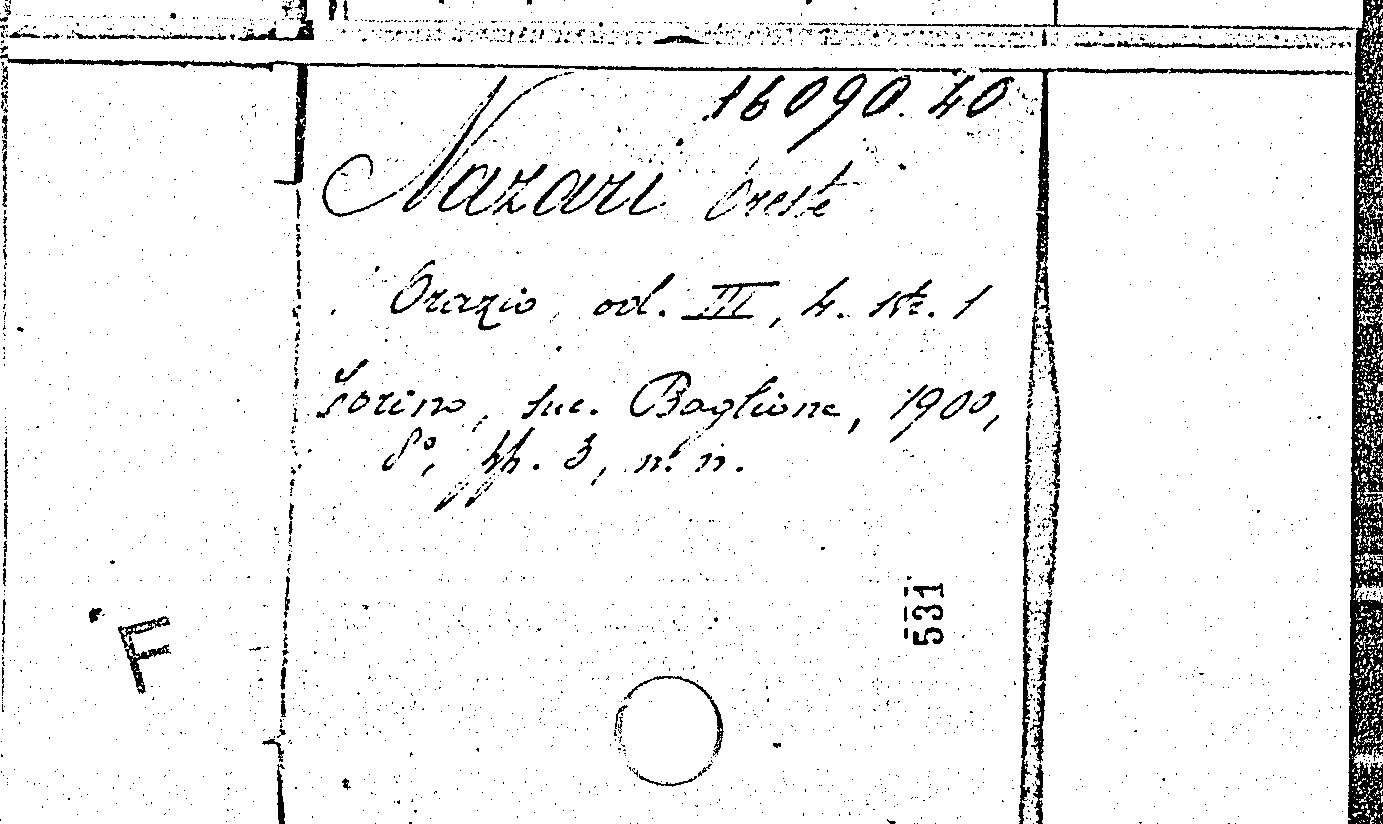 16090.40
Nazari Oreste
Orazio, od. III, 4. str. 1
Torino, suc. Baglione, 1900,
8°, pp. 3, n. n.
531
F